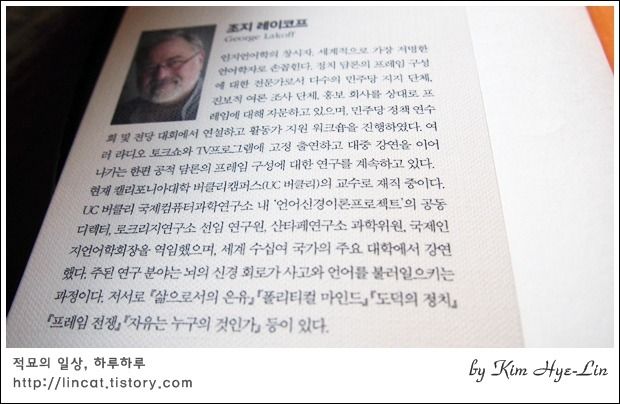 조지 레이코프
George Lakoff
인지언어학의 창시자. 세계적으로 가장 저명한
언어학자로 손꼽힌다. 정치 담론의 프레임 구성
에 대한 전문가로서 다수의 민주당 지지 단체,
진보적 여론 조사 단체, 홍보 회사를 상대로 프
레임에 대해 자문하고 있으며, 민주당 정책 연수
회 및 전당 대회에서 연설하고 활동가 지원 워크숍을 진행하였다. 여
러 라디오 토크쇼와 TV프로그램에 고정 출연하고 대중 강연을 이어
나가는 한편 공적 담론의 프레임 구성에 대한 연구를 계속하고 있다.
현재 캘리포니아대학 버클리캠퍼스(UC 버클리)의 교수로 재직 중이다.
UC 버클리 국제컴퓨터과학연구소 내 '언어신경이론프로젝트'의 공동
디렉터, 로크리지연구소 선임 연구원, 산타페연구소 과학위원, 국제인
지언어학회장을 역임했으며, 세계 수십여 국가의 주요 대학에서 강연
했다. 주된 연구 분야는 뇌의 신경 회로가 사고와 언어를 불러일으키는
과정이다. 저서로 『삶으로서의 은유』『폴리티컬 마인드』『도덕의 정치』
『프레임 전쟁』『자유는 누구의 것인가』 등이 있다.
적묘의 일상, 하루하루
http://lincat.tistory.com
by Kim Hye-Lin